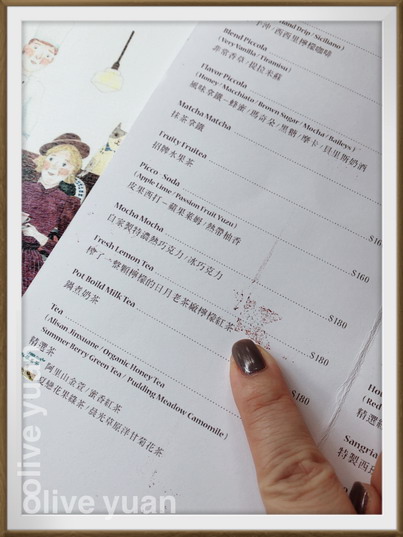 Hand Drip / Siciliano)
手沖/西西里檸檬咖啡
Blend Piccola
(Very Vanilla / Tiramisu)
非常香草/提拉米蘇
Flavor Piccola
(Honey / Macchiato / Brown Sugar / Mocha / Baileys)
風味拿鐵-蜂蜜/瑪奇朵/黑糖/摩卡/貝里斯奶酒
Matcha Matcha
抹茶拿鐵
Fruity Fruitea
招牌水果茶
$160
Picco Soda
(Apple Lime / Passion Fruit Yuzu)
皮果西打-蘋果萊姆/熱帶柚香
$160
Mocha Mocha
自家製特濃熱巧克力/冰巧克力
$180
Fresh Lemon Tea
榨了一整顆檸檬的日月老茶廠檸檬紅茶
$180
Pot Boild Milk Tea
鍋煮奶茶
$180
Tea
(Alisan Jinxuane / Organic Honey Tea
Summer Berry Green Tea / Pudding Meadow Camomile)
精選茶
阿里山金萱/蜜香紅茶
夏戀花果綠茶/晨光草原洋甘菊花茶
(Red
精選
Sangria
特製西班
olive yuan
olive yuan